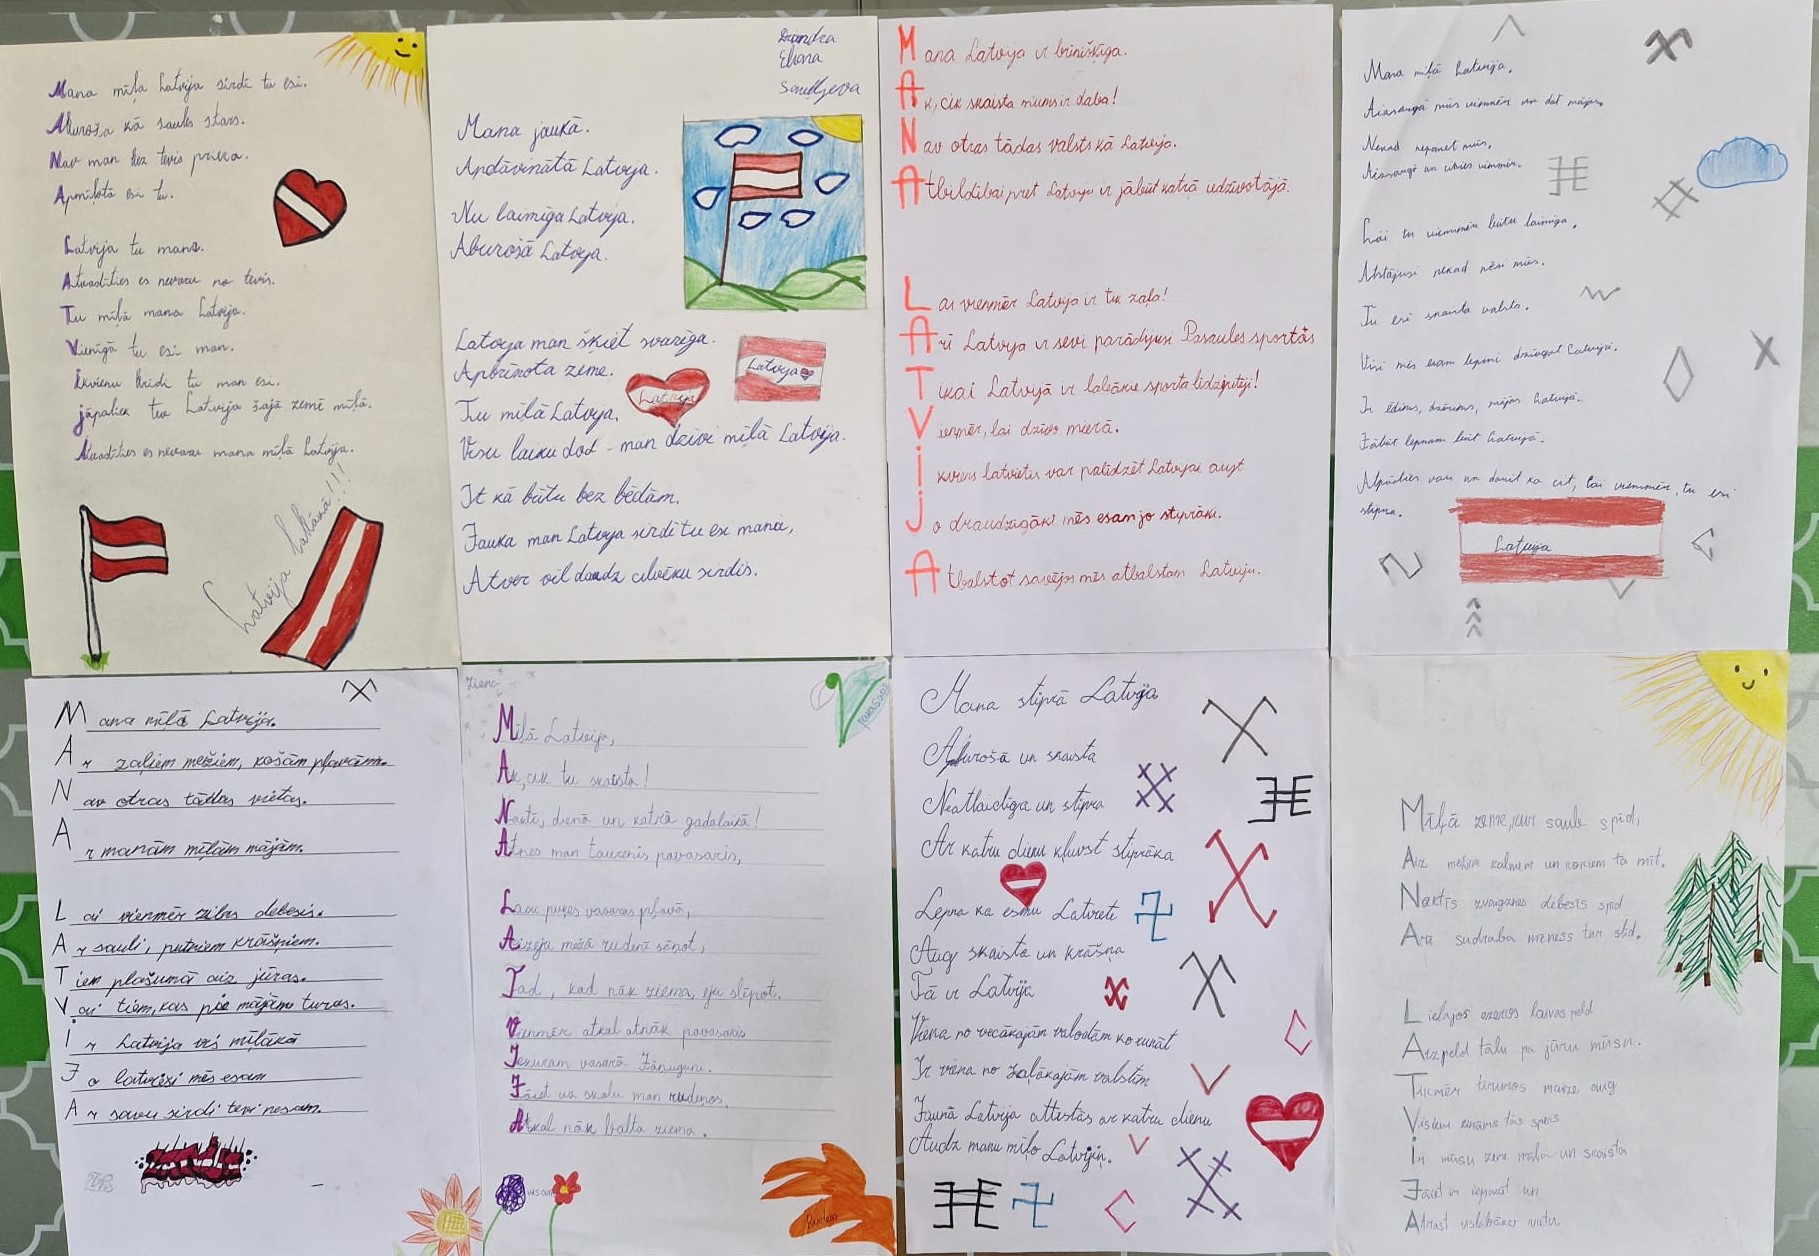 Mana mīļa Latvija sirdī tu esi.
Aburoša kā saules stars.
Nav man bez tevis prieka.
Apmīļota esi tu.
Latvija tu mana.
Atvadīties es nevaru no tevis.
Tu mīļā mana Latvija.
Vienīgā tu esi man.
Ikvienu brīdi tu man esi.
jāpaliek tev Latvija šajā zemē mīļā.
Atvadīties es nevaru mana mīļā Latvija.
Latvija labākā!!!
Eliana
Mana jaukā.
Apdāvinātā Latvija.
Nu laimīga Latvija.
Aburošā Latvija.
Latvija man šķiet svarīga.
Apbrīnota zeme.
Tu mīļā Latvija.
Visu laiku dod - man dzīvi mīļā Latvija.
It kā būtu bez bēdām.
Jauka man Latvija sirdī tu esi manā,
Atver vēl daudz cilvēku sirdis.
Latvija
Latvija
Mana Latvija ir brīnišķīga.
Ak, cik skaista mums ir daba!
Nav otras tādas valsts kā Latvija.
Atbildībai pret Latviju ir jābūt katrā iedzīvotājā.
Lai vienmēr Latvija ir tik zaļa!
Arī Latvija ir sevi parādījusi Pasaules sportās
Tikai Latvijā ir labākie sporta līdzjutēji!
Vienmēr, lai dzīvo mierā.
ikviens latvietis var palīdzēt Latvijai augt
Jo draudzīgāki mēs esam jo stiprāki.
Atbalstot savējos mēs atbalstam Latviju.
Mana mīļā Latvija.
Aizsargā mūs vienmēr un dod mājas.
Nekad nepamet mūs.
Aizsargā un vienmēr.
Lai tu vienmēr būtu laimīga.
Atstājusi nekad nēsi mūs.
Tu esi skaista valsts.
Visi mēs esam lepni dzīvojot Latvijā.
Ir ēdiens, dzēriens, mājas Latvijā.
Jābūt lepnam būt Latvijā.
Atpūsties vari un darīt ko cit, lai vienmēr, tu esi
stipra.
Latvija
Mana mīļā Latvija.
Ar zaļiem mežiem, košām pļavām.
Nav otras tādas vietas.
Ar manām mīļām mājām.
Lai vienmēr zilas debesis.
Ar sauli, putniem krāšņiem.
Tiem plašumā aiz jūras.
Vai tiem, kas pie mājām turas.
Ir Latvija vis mīļākā
Jo latvieši mēs esam
Ar savu sirdi tevi nesam.
Ziema
Pavasaris
Mīļā Latvija,
Ak, cik tu skaista!
Naktī, dienā un katrā gadalaikā!
Atnes man taurenis pavasaris,
Lasu puķes vasaras pļavā,
Aizeju mežā rudenī sēņot,
Tad, kad nāk ziema, eju slēpot.
Vienmēr atkal atnāk pavasaris
Iekuram vasarā Jāņuguni.
Jāiet uz skolu man rudeņos,
Atkal nāk balta ziema.
Rudens
Mana stiprā Latvija
Aburošā un skaista
Neatlaidīga un stipra
Ar katru dienu kļuvst stiprāka
Lepna ka esmu Latviete
Aug skaista un krāšņa
Tā ir Latvija
Viena no vecākajām valodām ko runāt
Ir viena no zaļākajām valstīm
Jaunā Latvija attīstās ar katru dienu
Audz manu mīļo Latvijiņ.
Mīļā zeme, kur saule spīd,
Aiz mežiem kalniem un ta mīt.
Naktīs zvaigznes debesīs spīd
Arī sudraba mēness tur slīd.
Lielajos ezeros laivas peld
Aizpeld tālu pa jūru mūsu.
Tīrumos maize aug
Visiem zināms tās spēks
Ir mūsu zeme mīļa un skaista
Jāiet un
Atrast vislabāko vietu